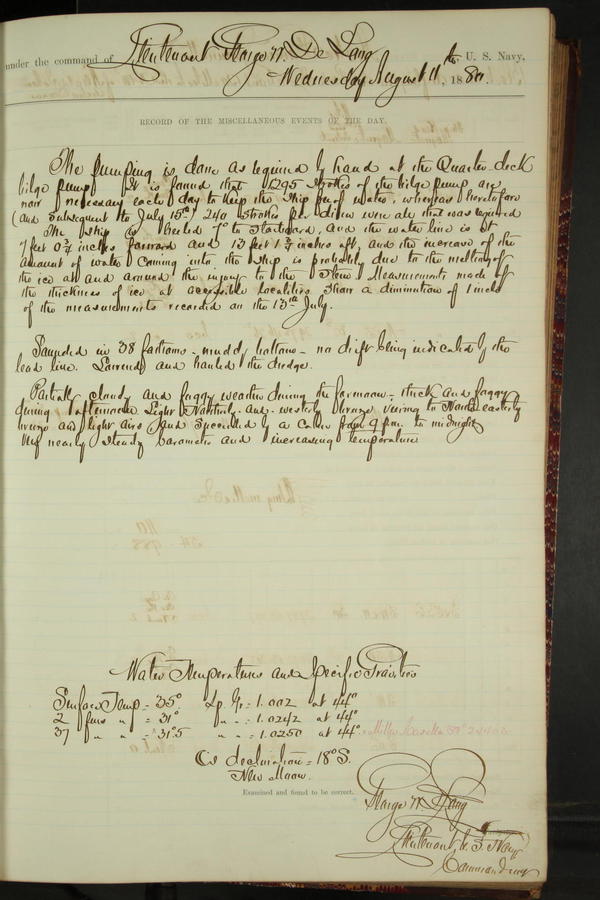 under the command of Lieutenant George W. De Long U. S. Navy,
Wednesday August 11th, 1880.
RECORD OF THE MISCELLANEOUS EVENTS OF THE DAY.
The pumping is done as required by hand at the Quarter deck
bilge pump. It is found that 1295 strokes of the bilge pump are
now necessary each day to keep the ship free of water, whereas heretofore
(and subsequent to July 15th) 240 strokes per diem were all that was required
The ship is heeled 7° to starboard, and the water line is at
7 feet 0 ¾ inches forward and 13 feet 1 ¾ inches aft, and the increase of the
amount of water coming into the ship is probably due to the melting of
the ice at and around the injury to the stem. Measurements made of
the thickness of ice at accessible localities show a diminution of inches
of the measurements recorded on the 13th July.
Sounded in 38 fathoms - muddy bottom - no drift being indicated by the
lead line. Lowered and hauled the dredge.
Partially cloudy and foggy weather during the forenoon - thick and foggy
during afternoon. Light Northerly and westerly breeze veering to North easterly
breeze and light airs and succeeded by a calm from 9 p.m. to midnight
Very nearly steady barometer and increasing temperature
Water Temperatures and Specific Gravities
Surface Temp = 35° Sp. Gr = 1.002 at 44°
2 fms " = 31° " " = 1.0242 at 44°
37 " " = 31°5 " " = 1.0250 at 44°
☾'s declination = 18° S.
New Moon.
Examined and found to be correct.
George W. De Long
Lieutenant U. S. Navy
Commanding